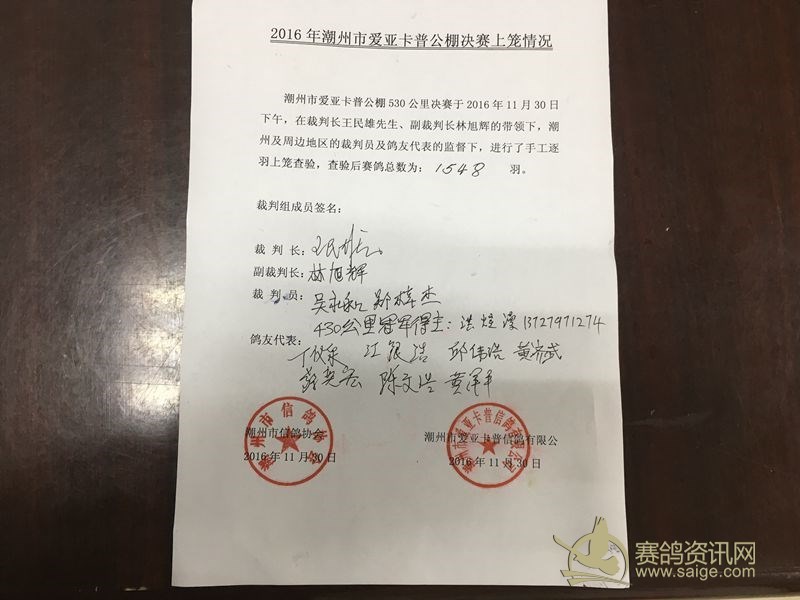 2016 年潮州市爱亚卡普公棚决赛上笼情况
潮州市爱亚卡普公棚 530 公里决赛于 2016 年 11 月 30 日
下午，在裁判长王民雄先生、副裁判长林旭辉的带领下，潮
州及周边地区的裁判员及鸽友代表的监督下，进行了手工逐
羽上笼查验，查验后赛鸽总数为： 1548 羽。
裁判组成员签名：
裁 判 长：
副裁判长：林旭辉
裁 判 员：吴永和
430公里冠军得主：洪 13727971274
鸽友代表：
江银浩 邱伟浩 黄
陈文浩 黄泽平
潮州市信鸽协会
2016 年 11 月 30 日
潮州市爱亚卡普信鸽有限公
2016 年 11 月 30 日
潮州市信鸽协会
潮州市爱亚卡普信鸽有限公司
赛鸽资讯网
www.saige.com